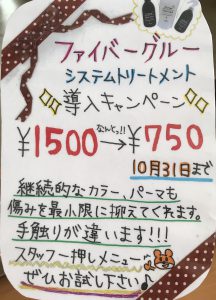 ファイバーグルー
システムトリートメント
導入キャンペーン
¥1500 なんとっ!! → ¥750
10月31日まで
継続的なカラー、パーマも
傷みを最小限に抑えてくれます。
手触りが違います!!!
スタッフー押しメニュー
ぜひお試し下さい♪